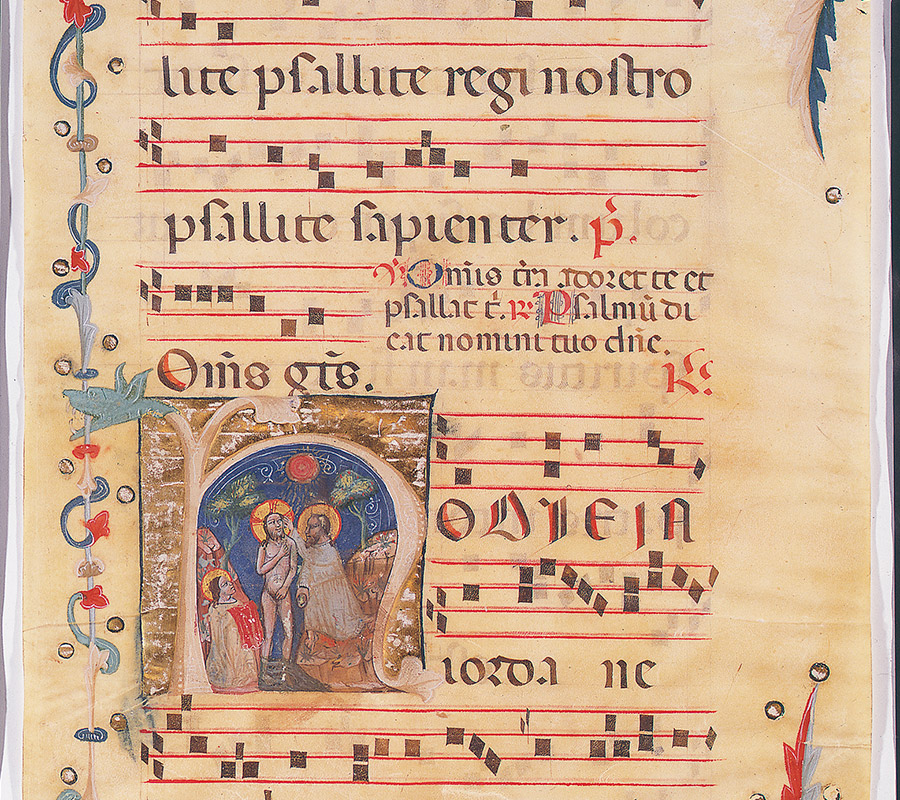 lite psallite regi nostro
psallite sapienter. p̄.
V Om̄is tr̄a adoret te et
psallat t̄. R Psalmū di
cat nomini tuo dn̄e.
Om̄s gt̄s. R
HODIE IN
iorda ne